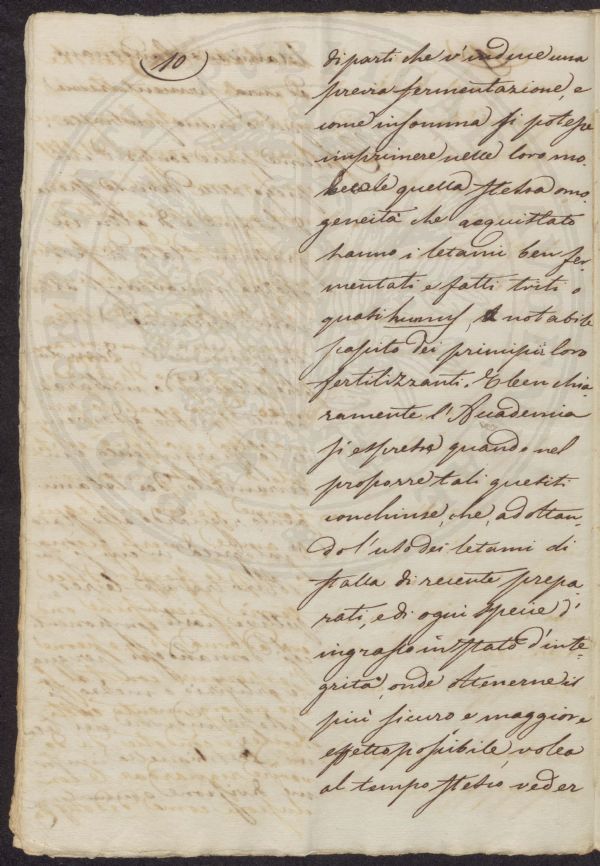 10
di parti che v'induce una
previa fermentazione, e
come in somma si potesse
imprimere nelle loro mo-
lecole quella stessa omo-
geneità che acquistato
hanno i letami ben fer-
mentati e fatti triti o
quasi humus, notabile
scapito dei principii loro
fertilizzanti. E ben chia-
ramente l'Accademia
si espresse quando nel
proporre tali quesiti
conchiuse, che, adottan-
do l'uso dei letami di
stalla di recente prepa-
rati, e di ogni specie d'
ingrasso in istato d'inte-
grità, onde ottenerne il
più sicuro e maggiore
effetto possibile, volea
al tempo stesso veder